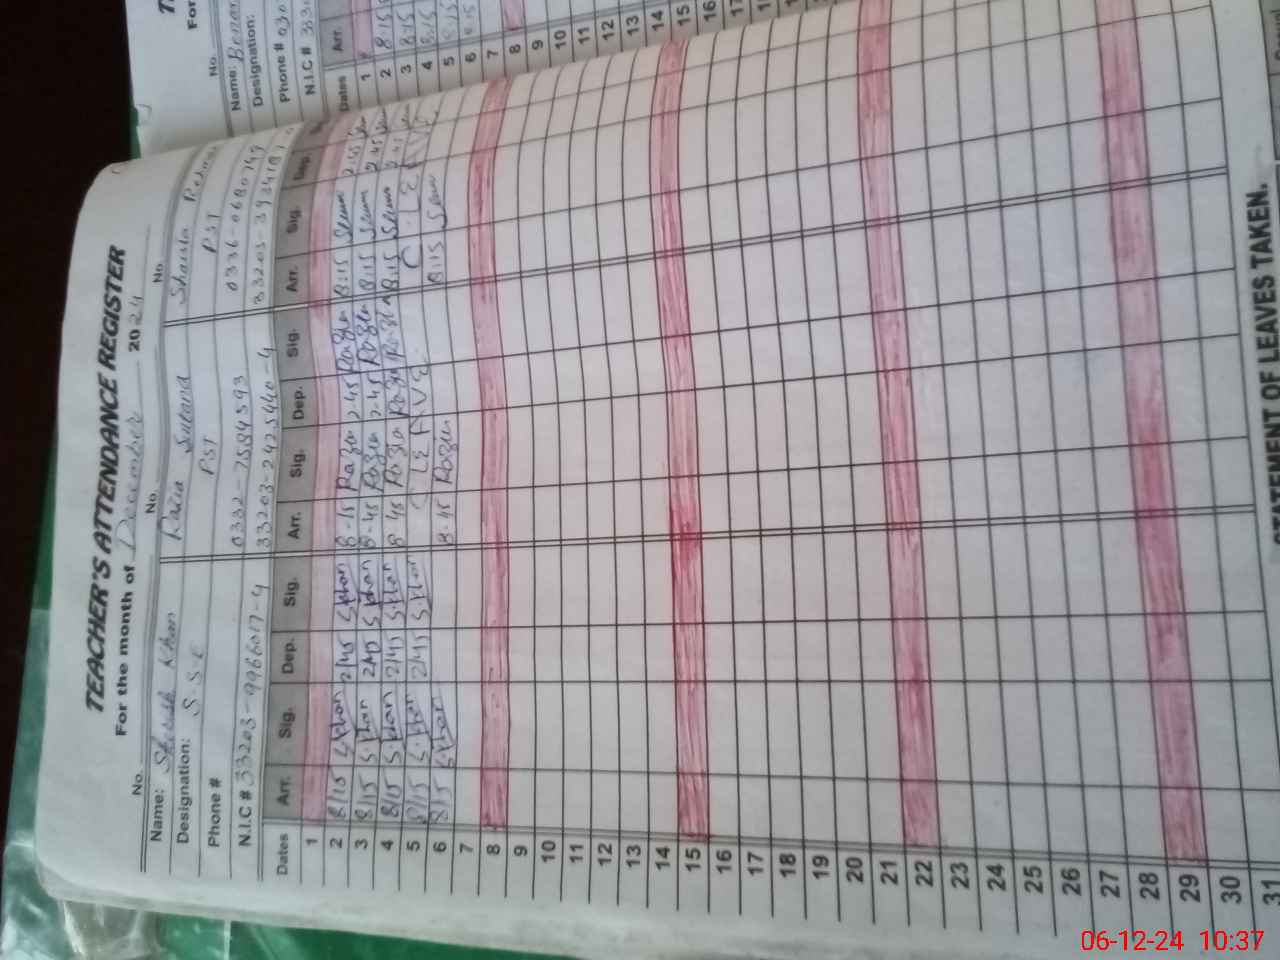 TEACHER'S ATTENDANCE REGISTER
For the month of December 2024
No. No. No.
Name: Khan Razia Sultana Shaista
Designation: S.S.E PST PST
Phone # 0332-7584593 0336-0680749
N.I.C # 33203-9966017-4 33203-2425440-4
Dates Arr. Sig. Dep. Sig. Arr. Sig. Dep. Sig. Arr. Sig. Dep.
1
2 8/15 S.Khan 2/45 S.Khan 8-15 Razia 2.45 Razia 8:15 2.45
3 8/15 S.Khan 2/45 S.Khan 8.45 Razia 2.45 Razia 8:15 2.45
4 8/15 S.Khan 2/45 S.Khan 8.45 Razia Razia 8:15
5 8/15 S.Khan 2/45 S.Khan C. LEAVE C. LEAVE
6 8/15 S.Khan 8.15 Razia 8:15
7
8
9
10
11
12
13
14
15
16
17
18
19
20
21
22
23
24
25
26
27
28
29
30
31
STATEMENT OF LEAVES TAKEN.
No.
Name:
Designation:
Phone # 030
N.I.C #
Dates Arr.
1
2 8:15
3 8:15
4 8:15
5 8:15
6
7
8
9
10
11
12
13
14
15
16
06-12-24 10:37